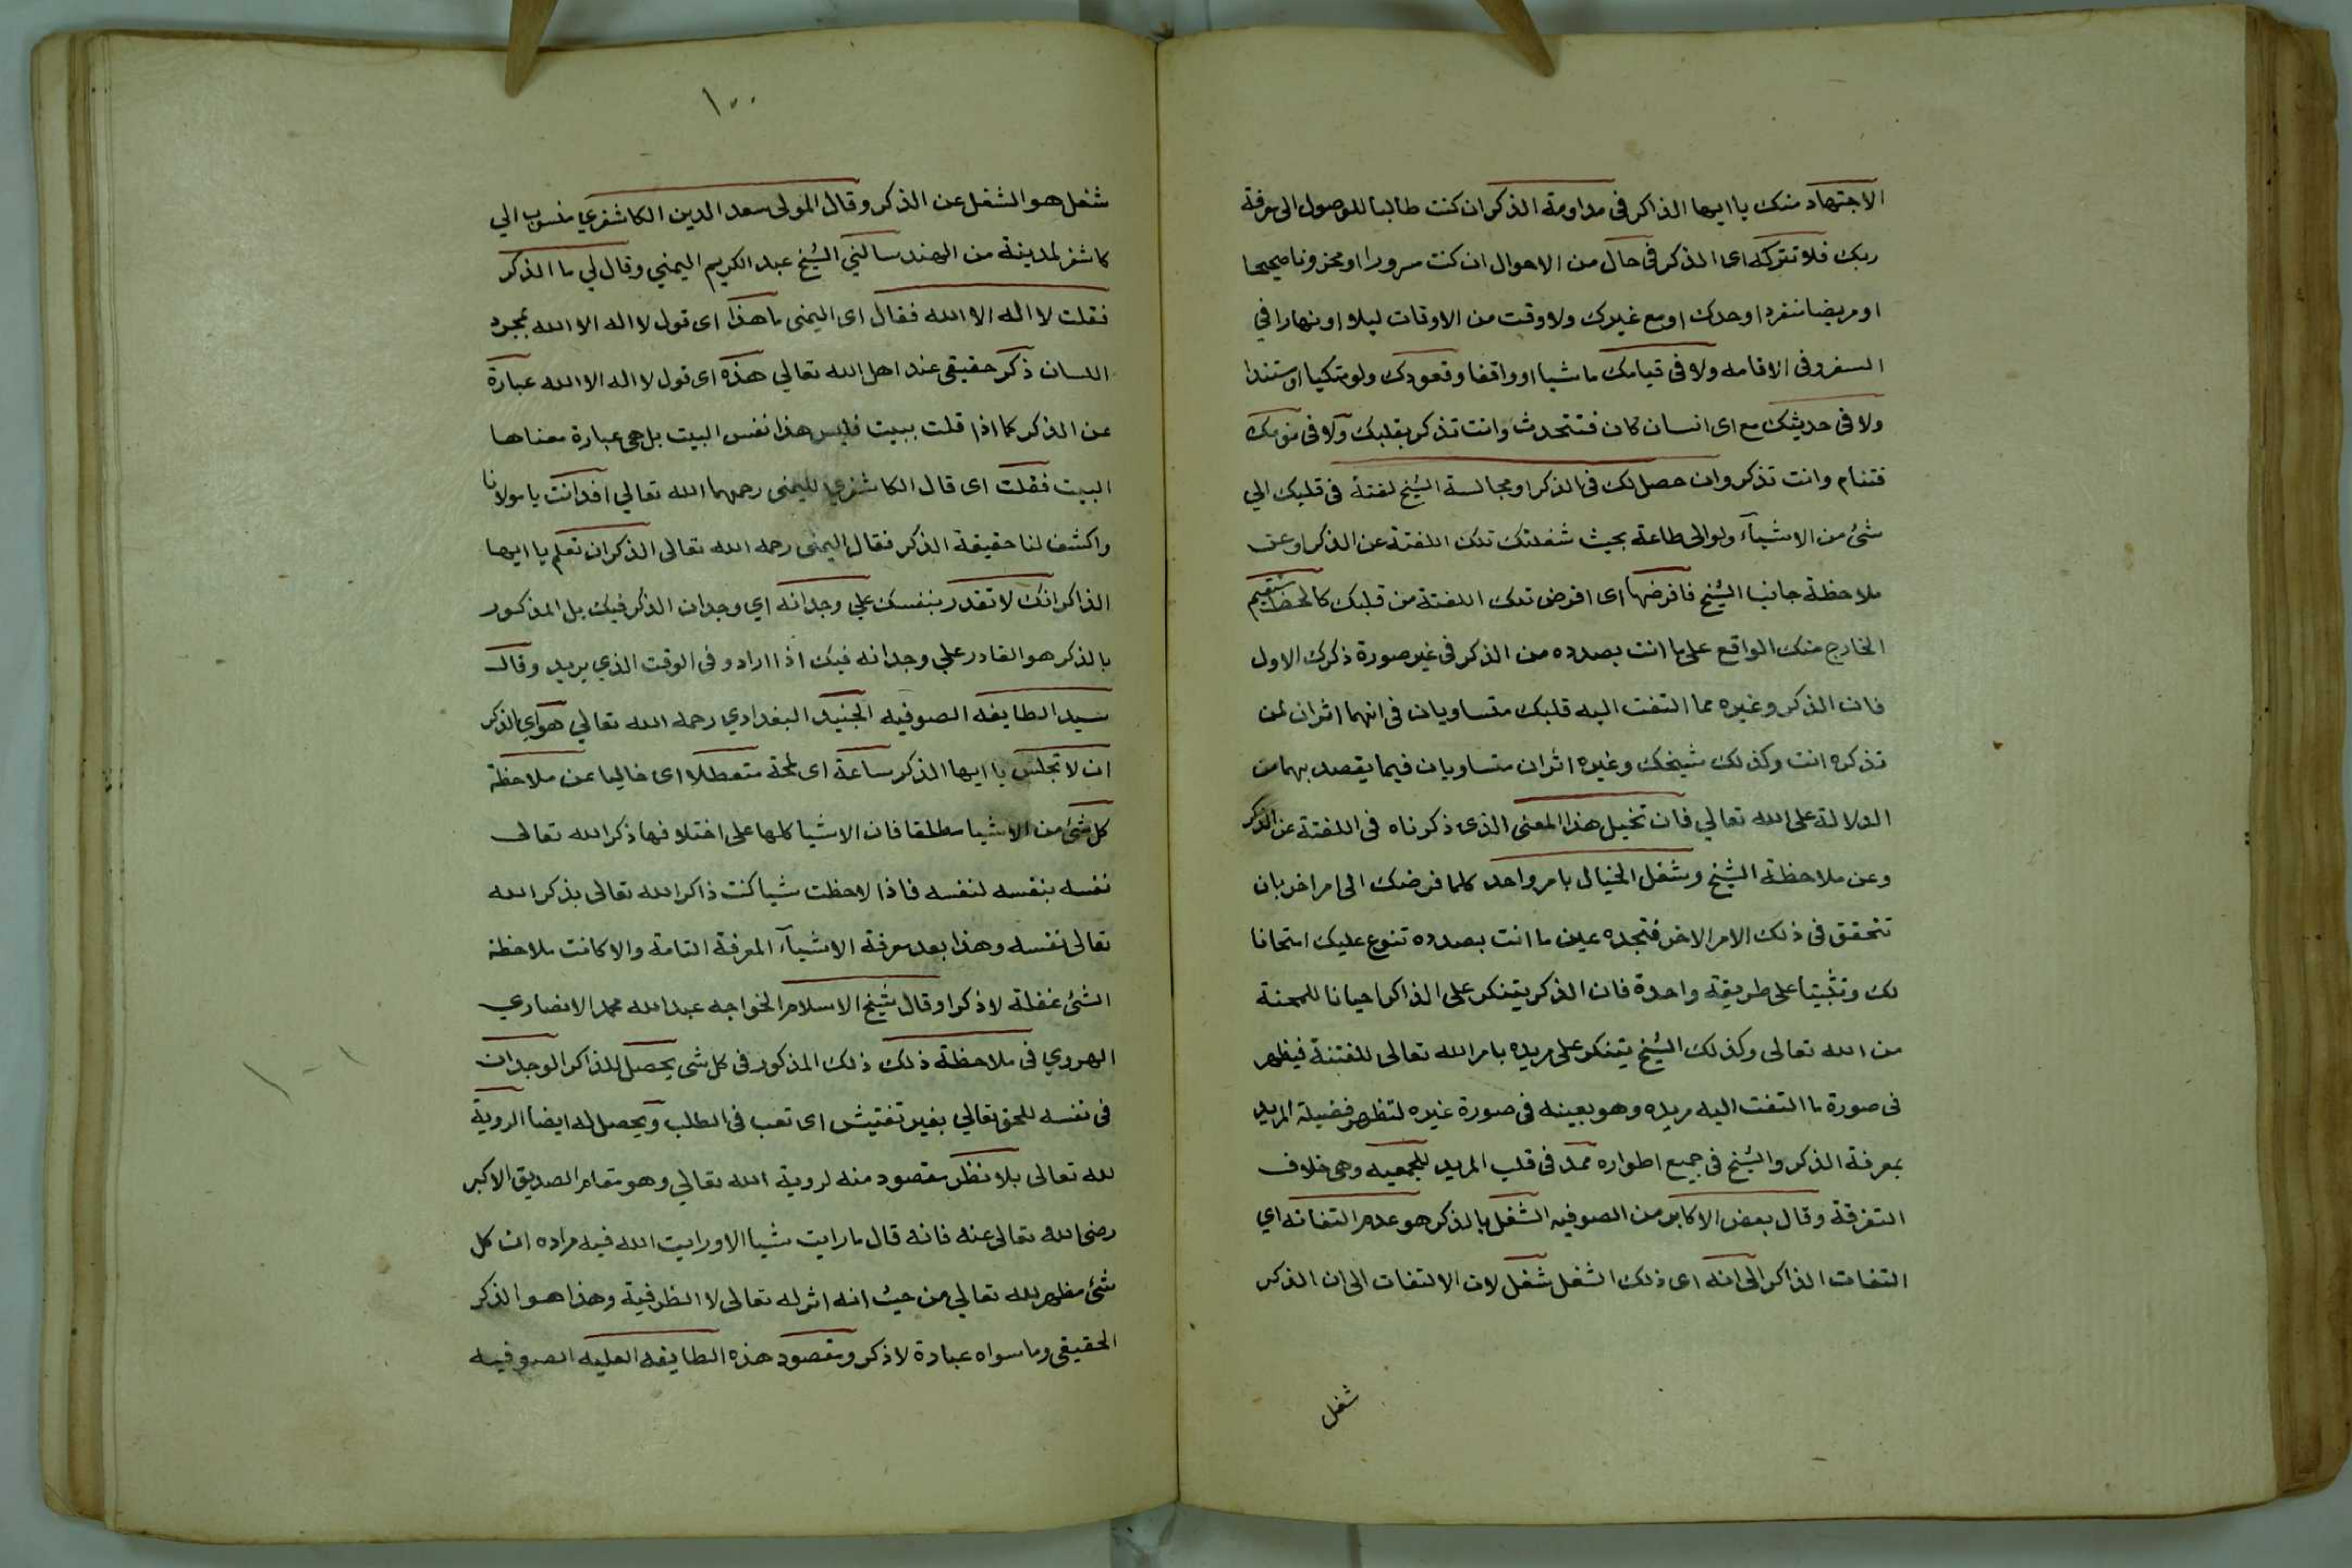 الاجتهاد منك يا ايها الذاكر فى مداومة الذكر ان كنت طالبا للوصول الى معرفة
ربك فلا تتركه اى الذكر فى حال من الاحوال ان كنت مسرورا او محزونا صحيحا
او مريضا منفردا وحدك او مع غيرك ولا وقت من الاوقات ليلا او نهارا في
السفر وفى الاقامه ولا فى قيامك ماشيا او واقفا وقعودك ولو متكيا او مستندا
ولا فى حديثك مع اى انسان كان فتتحدث وانت تذكر بقلبك ولا فى نومك
فتنام وانت تذكر وان حصل لك فى الذكر او مجالسة الشيخ لفتة فى قلبك الي
شئ من الاشيآء ولو الى طاعة بحيث شغلتك تلك اللفتة عن الذكر او عن
ملاحظة جانب الشيخ فافرضها اى افرض تلك اللفتة من قلبك كالخط
الخارج منك الواقع على ما انت بصدده من الذكر فى غير صورة ذكرك الاول
فان الذكر وغيره مما التفت اليه قلبك متساويان فى انهما اثران لمن
تذكره انت وكذلك شيخك وغيره اثران متساويان فيما يقصد بهما من
الدلالة على الله تعالي فان تخيل هذا المعنى الذى ذكرناه فى اللفتة عن الذكر
وعن ملاحظة الشيخ وشغل الخيال بامر واحد كلما فرضك الى امر اخر بان
تتحقق فى ذلك الامر الاخر فتجده عين ما انت بصدده تنوع عليك امتحانا
لك وتثبيتا على طريقة واحدة فان الذكر يتنكر على الذاكر احيانا للمحنة
من الله تعالى وكذلك الشيخ يتنكر على مريده بامر الله تعالى للفتنة فيظهر
فى صورة ما التفت اليه مريده وهو بعينه فى صورة غيره لتظهر فضيلة المريد
بمعرفة الذكر والشيخ فى جميع اطواره ممد فى قلب المريد للجمعيه وهى خلاف
التفرقة وقال بعض الاكابر من الصوفيه الشغل بالذكر هو عدم التفاته اي
التفات الذاكر الى انه اى ذلك الشغل شغل لان الالتفات الى ان الذكر
شغل
١٠٠
شغل هو الشغل عن الذكر وقال المولى سعد الدين الكاشغري منسوب الي
كاشغر لمدينة من الهند سالني الشيخ عبد الكريم اليمني وقال لي ما الذكر
فقلت لا اله الا الله فقال اى اليمنى ما هذا اى قول لا اله الا الله بمجرد
اللسان ذكر حقيقى عند اهل الله تعالي هذه اى قول لا اله الا الله عبارة
عن الذكر كما اذا قلت ببيت فليس هذا نفس البيت بل هى عبارة معناها
البيت فقلت اى قال الكاشغري لليمنى رحمهما الله تعالي افد انت يا مولانا
واكشف لنا حقيقة الذكر فقال اليمنى رحمه الله تعالى الذكر ان تعلم يا ايها
الذاكر انك لا تقدر بنفسك علي وجدانه اي وجدان الذكر فيك بل المذكور
بالذكر هو القادر علي وجدانه فيك اذا اراد وفى الوقت الذي يريد وقال
سيد الطايفه الصوفيه الجنيد البغدادي رحمه الله تعالي هو اي الذكر
ان لا تجلس يا ايها الذكر ساعة اى لمحة متعطلا اى خاليا عن ملاحظة
كل شئ من الاشيا مطلقا فان الاشيا كلها على اختلافها ذكر الله تعالى
نفسه بنفسه لنفسه فاذا لاحظت شيا كنت ذاكر الله تعالى بذكر الله
تعالى نفسه وهذا بعد معرفة الاشيآء المعرفة التامة والا كانت ملاحظة
الشئ غفلة لا ذكرا وقال شيخ الاسلام الخواجه عبد الله محمد الانصاري
الهروي فى ملاحظة ذلك ذلك المذكور فى كل شى يحصل للذاكر الوجدان
فى نفسه للحق تعالي بغير تفتيش اى تعب فى الطلب ويحصل له ايضا الروية
لله تعالى بلا نظر مقصود منه لروية الله تعالي وهو مقام الصديق الاكبر
رضى الله تعالى عنه فانه قال ما رايت شيا الا ورايت الله فيه مراده ان كل
شئ مظهر لله تعالي من حيث انه اثر له تعالى لا الظرفية وهذا هو الذكر
الحقيقى وما سواه عبادة لا ذكر ومقصود هذه الطايفه العليه الصوفيه